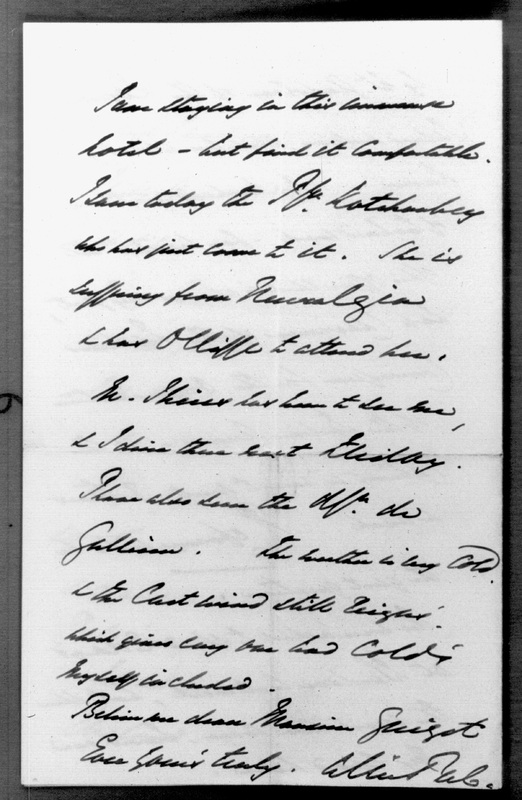 I am staying in this immense
hotel – but find it comfortable.
I saw today the Pss. Kotchoubey
who has just come to it. She is
suffering from Neuralgia
& has Olliffe to attend her.
M. Thiers has been to see me,
& I dine there next
I have also seen the de
Galliera. The weather is very cold
& the East wind still reigns
which gives every one bad Colds
Myself included.
Believe me dear Monsieur Guizot
Ever yours truly.